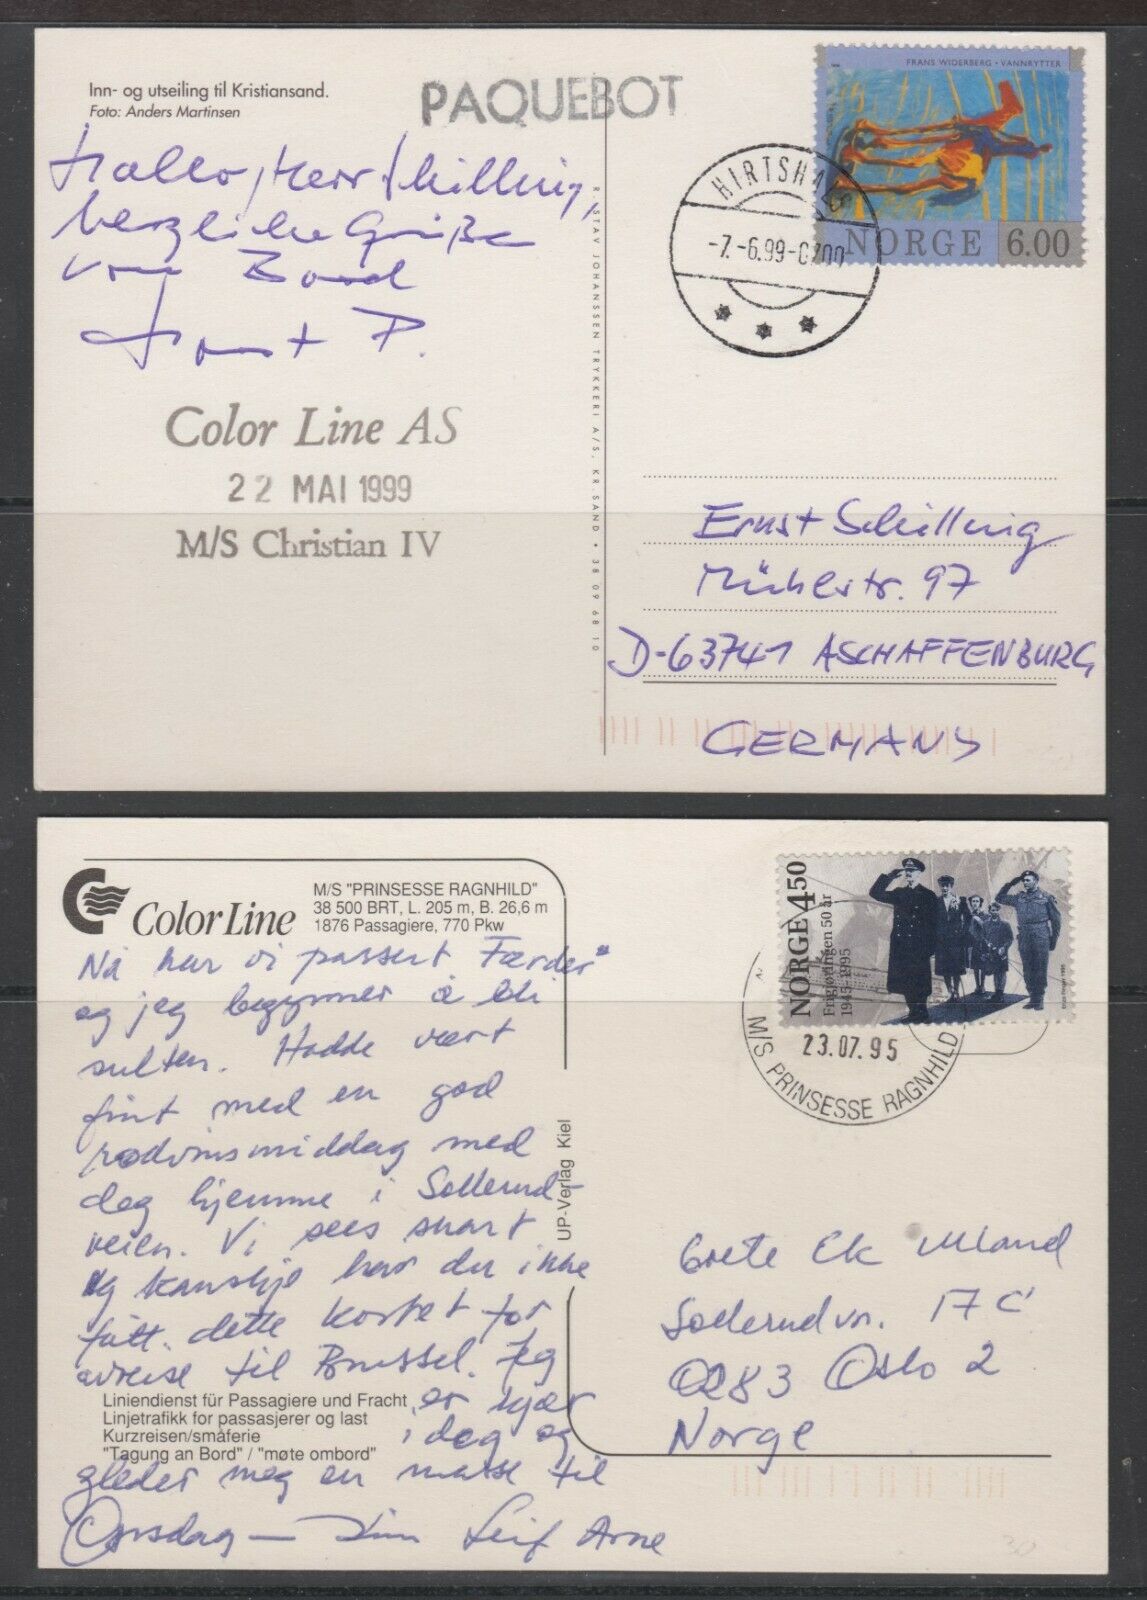 Inn- og utseiling til Kristiansand.
Foto: Anders Martinsen
PAQUEBOT
FRANS WIDERBERG • VANNRYTTER
NORGE 6.00
HIRTSHALS
-7.-6.99-0700
Hallo, Herr Schilling,
herzliche Grüße
von Bord
Horst P.
Color Line AS
22 MAI 1999
M/S Christian IV
STAV JOHANSSEN TRYKKERI A/S, KR SAND • 38 09 68 10
Ernst Schilling
Mühlstr. 97
D-63741 ASCHAFFENBURG
GERMANY
Color Line
M/S "PRINSESSE RAGNHILD"
38 500 BRT, L. 205 m, B. 26,6 m
1876 Passagiere, 770 Pkw
NORGE 4.50
Frigjøringen 50 år
1945-1995
23.07.95
M/S PRINSESSE RAGNHILD
Nå har vi passert Færder
og jeg begynner å bli
sulten. Hadde vært
fint med en god
rødvinsmiddag med
deg hjemme i Sollerud-
veien. Vi sees snart
og kanskje har du ikke
fått dette kortet før
avreise til Brussel. Jeg
er kjær
i deg og
gleder meg en masse til
Onsdag — Din Leif Arne
UP-Verlag Kiel
Liniendienst für Passagiere und Fracht
Linjetrafikk for passasjerer og last
Kurzreisen/småferie
"Tagung an Bord" / "møte ombord"
Grete Ek Ulland
Sollerudvn. 17 C
0283 Oslo 2
Norge
30